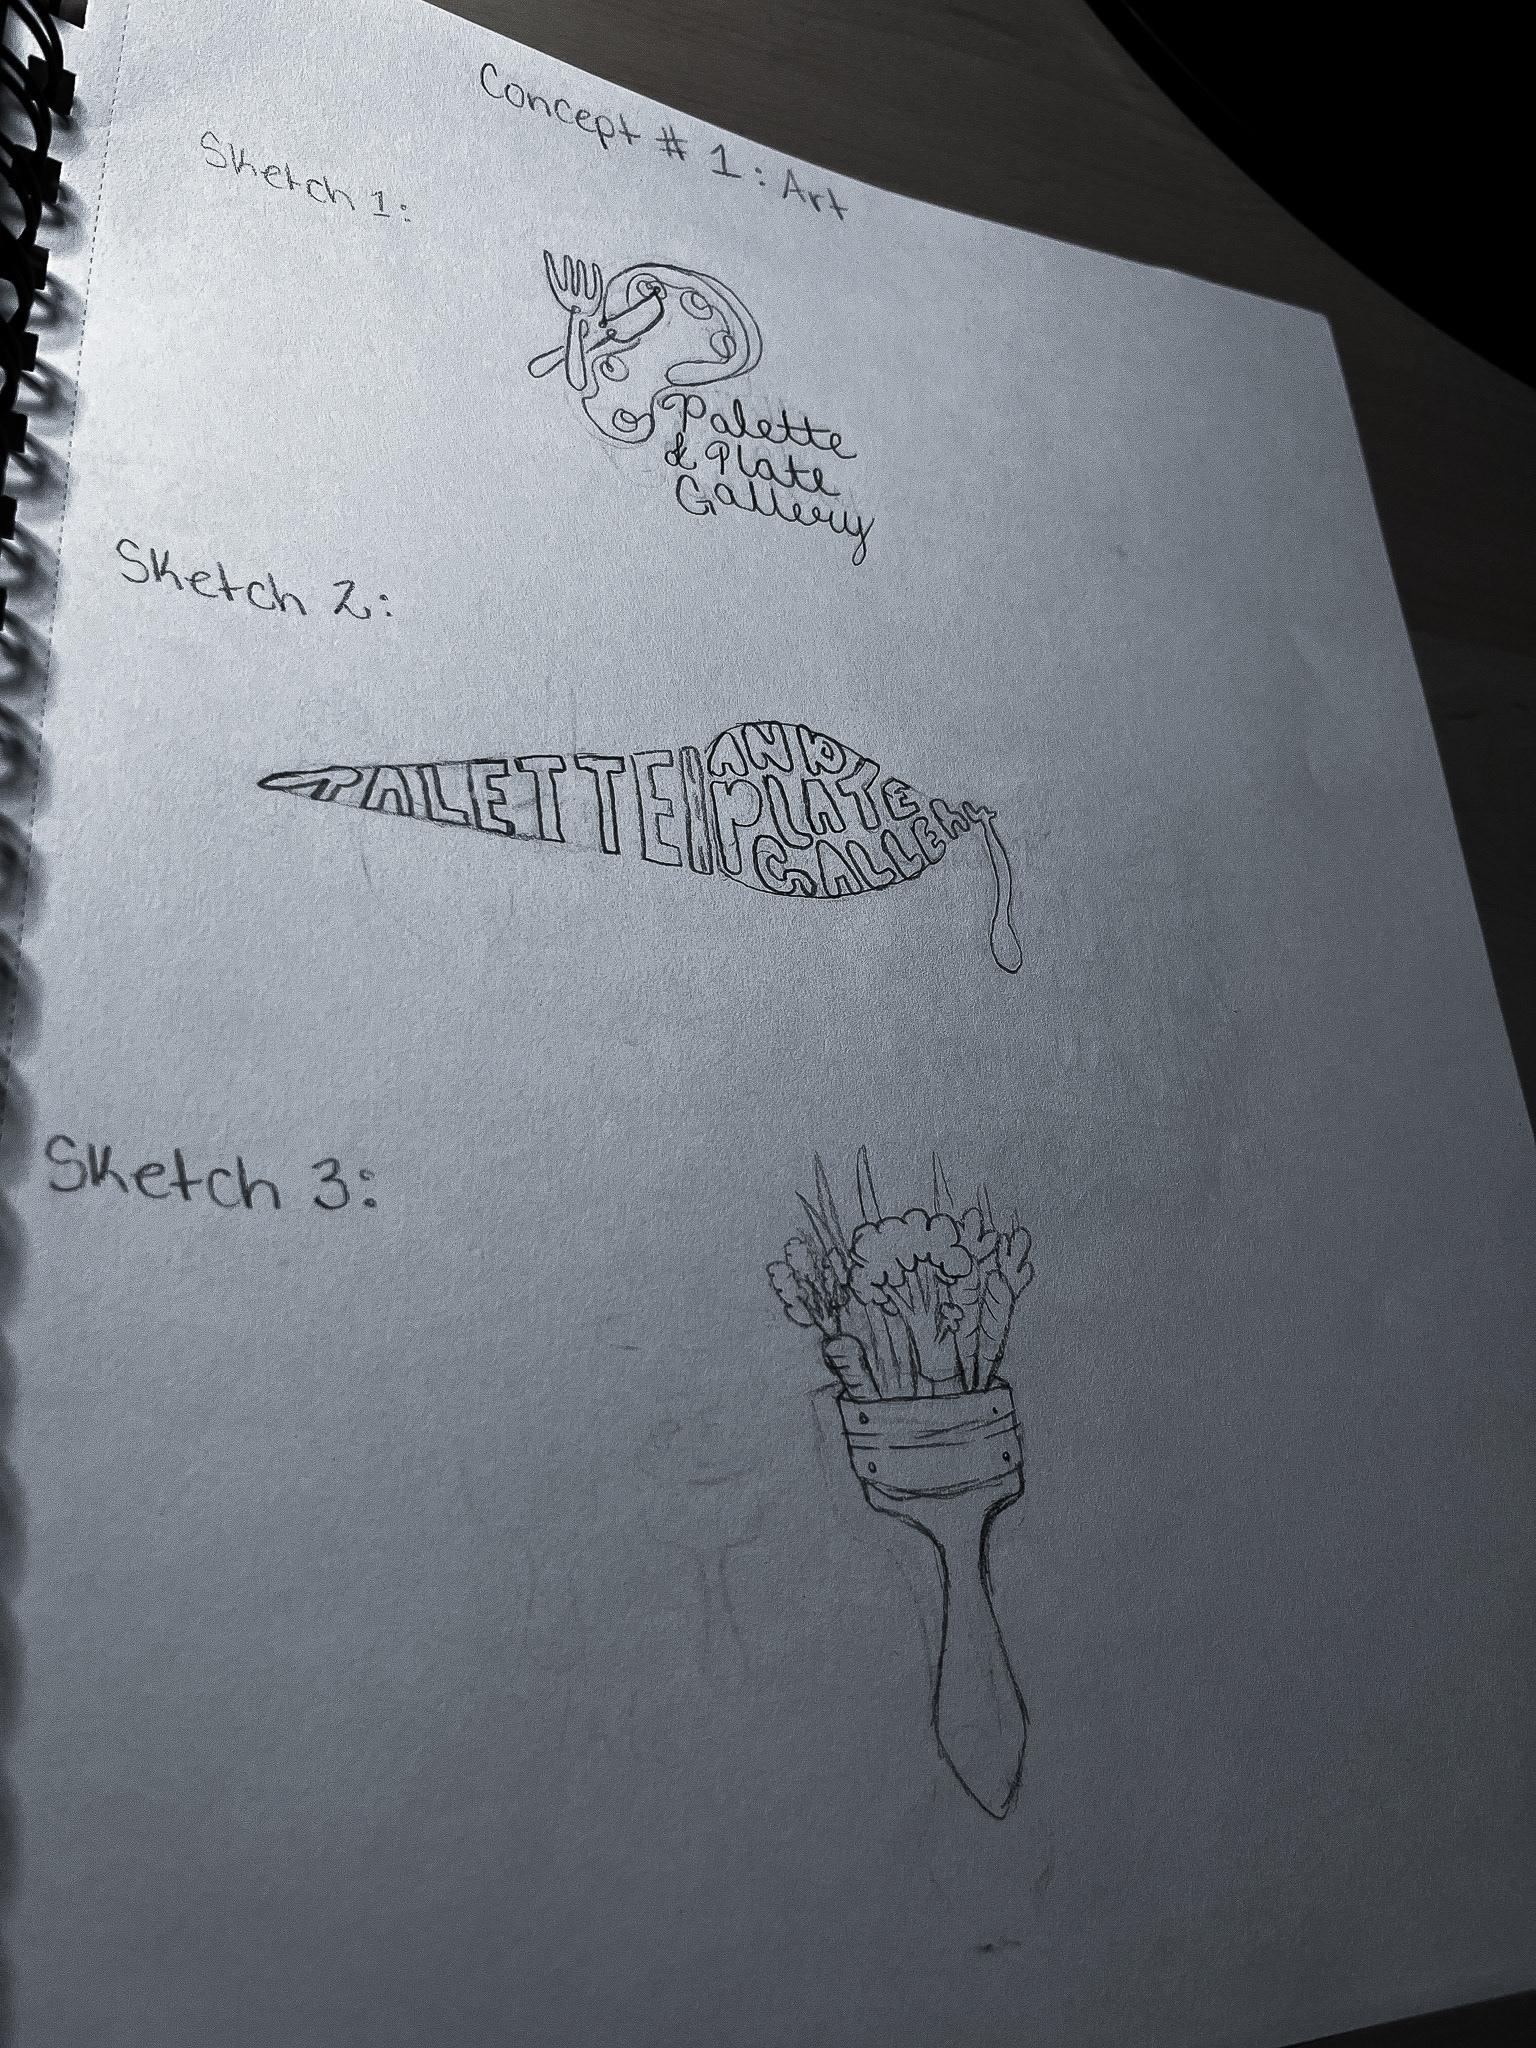 Concept # 1: Art
Sketch 1:
Palette
& Plate
Gallery
Sketch 2:
PALETTE
AND
PLATE
GALLERY
Sketch 3: